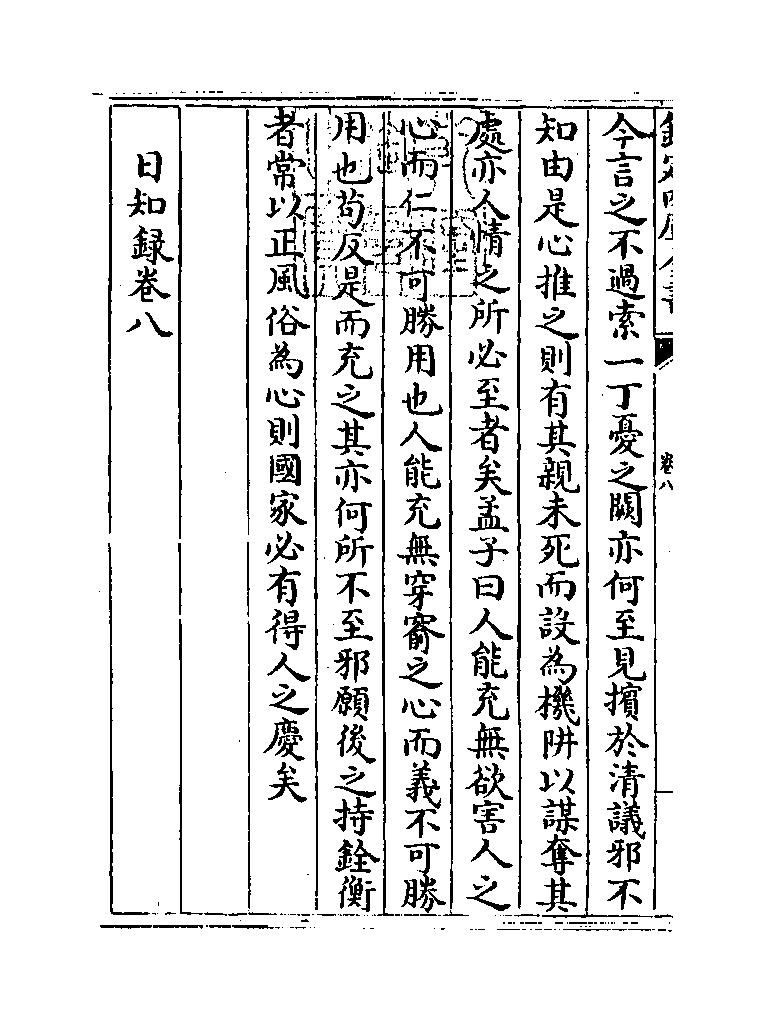 今言之不過索一丁憂之闕亦何至見擯於清議邪不
知由是心推之則有其親未死而設為機阱以謀奪其
處亦人情之所必至者矣孟子曰人能充無欲害人之
心而仁不可勝用也人能充無穿窬之心而義不可勝
用也苟反是而充之其亦何所不至邪願後之持銓衡
者常以正風俗為心則國家必有得人之慶矣
日知録卷八
卷八